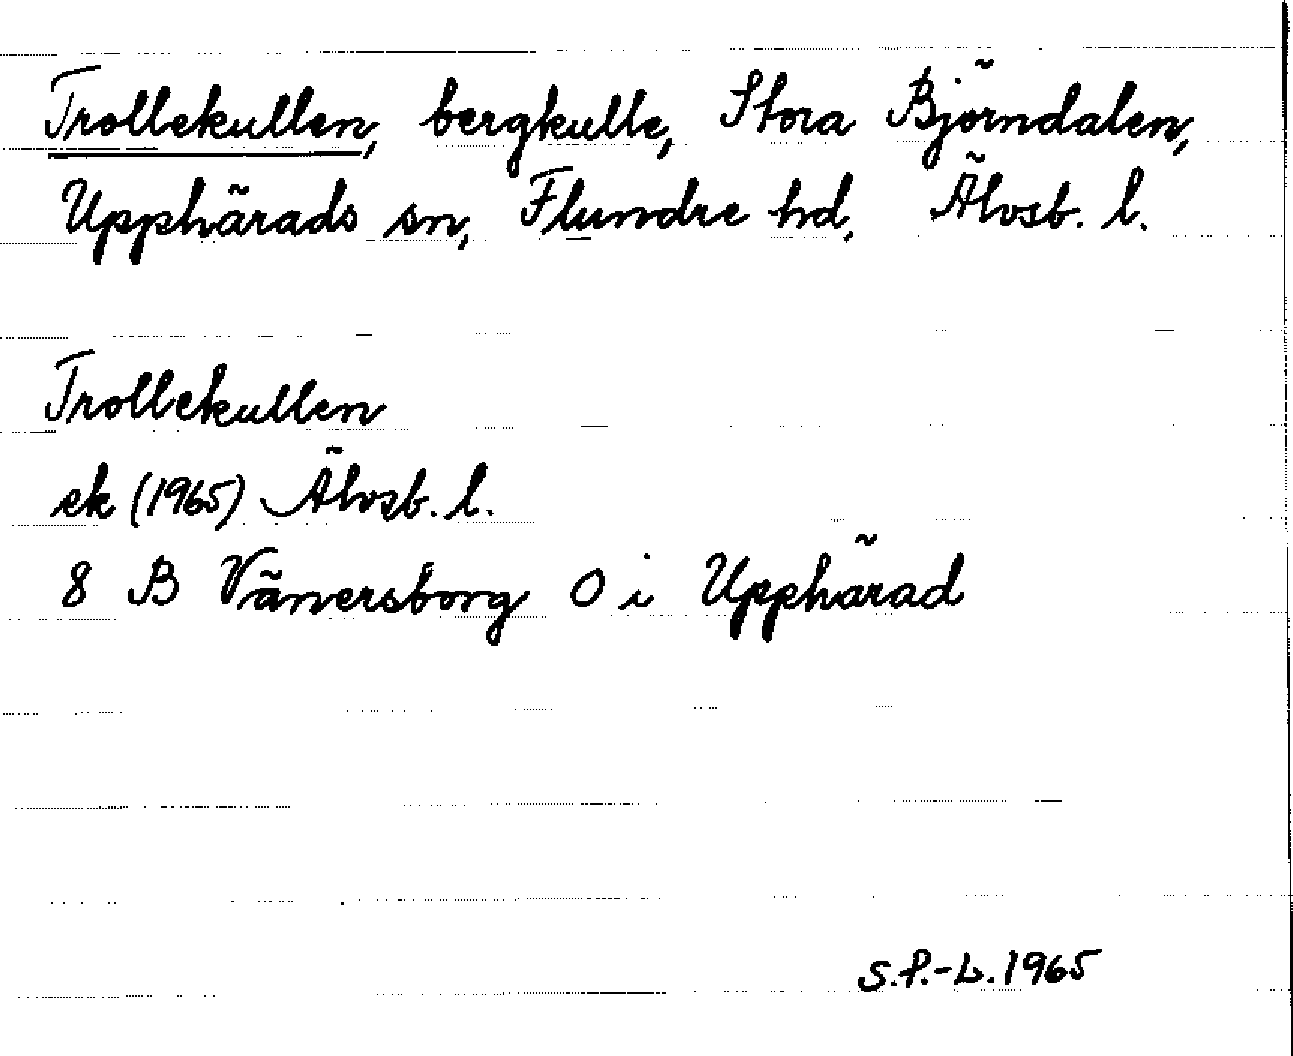 Trollekullen, bergkulle, Stora Björndalen,
Upphärads sn, Flundre hd, Älvsb. l.
Trollekullen
ek (1965) Älvsb. l.
8 B Vänersborg O i Upphärad
S.P.-L. 1965